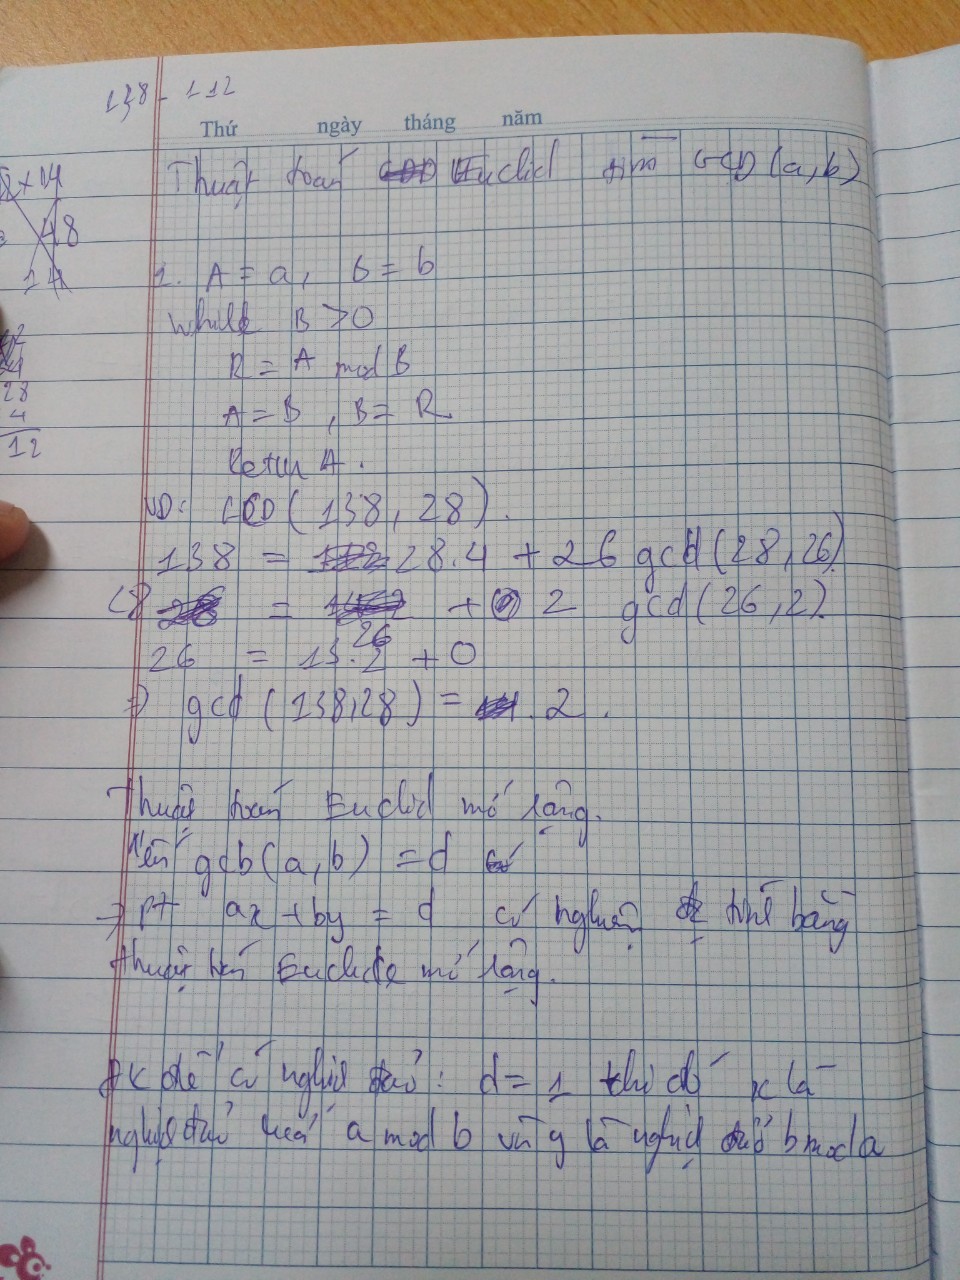 138 - 112
Thứ ngày tháng năm
Thuật toán Euclid tìm GCD (a, b)
1. A = a, B = b
While B > 0
R = A mod B
A = B , B = R
Return A.
VD: GCD (138, 28).
138 = 28.4 + 26 gcd (28, 26)
28 = 26 + 2 gcd (26, 2)
26 = 13.2 + 0
=> gcd (138, 28) = 2.
Thuật toán Euclid mở rộng.
Nếu gcb (a, b) = d
=> pt ax + by = d có nghiệm tính bằng
thuật toán Euclide mở rộng.
ĐK để có nghịch đảo: d = 1 khi đó x là
nghịch đảo a mod b và y là nghịch đảo b mod a
48
14
28
4
12